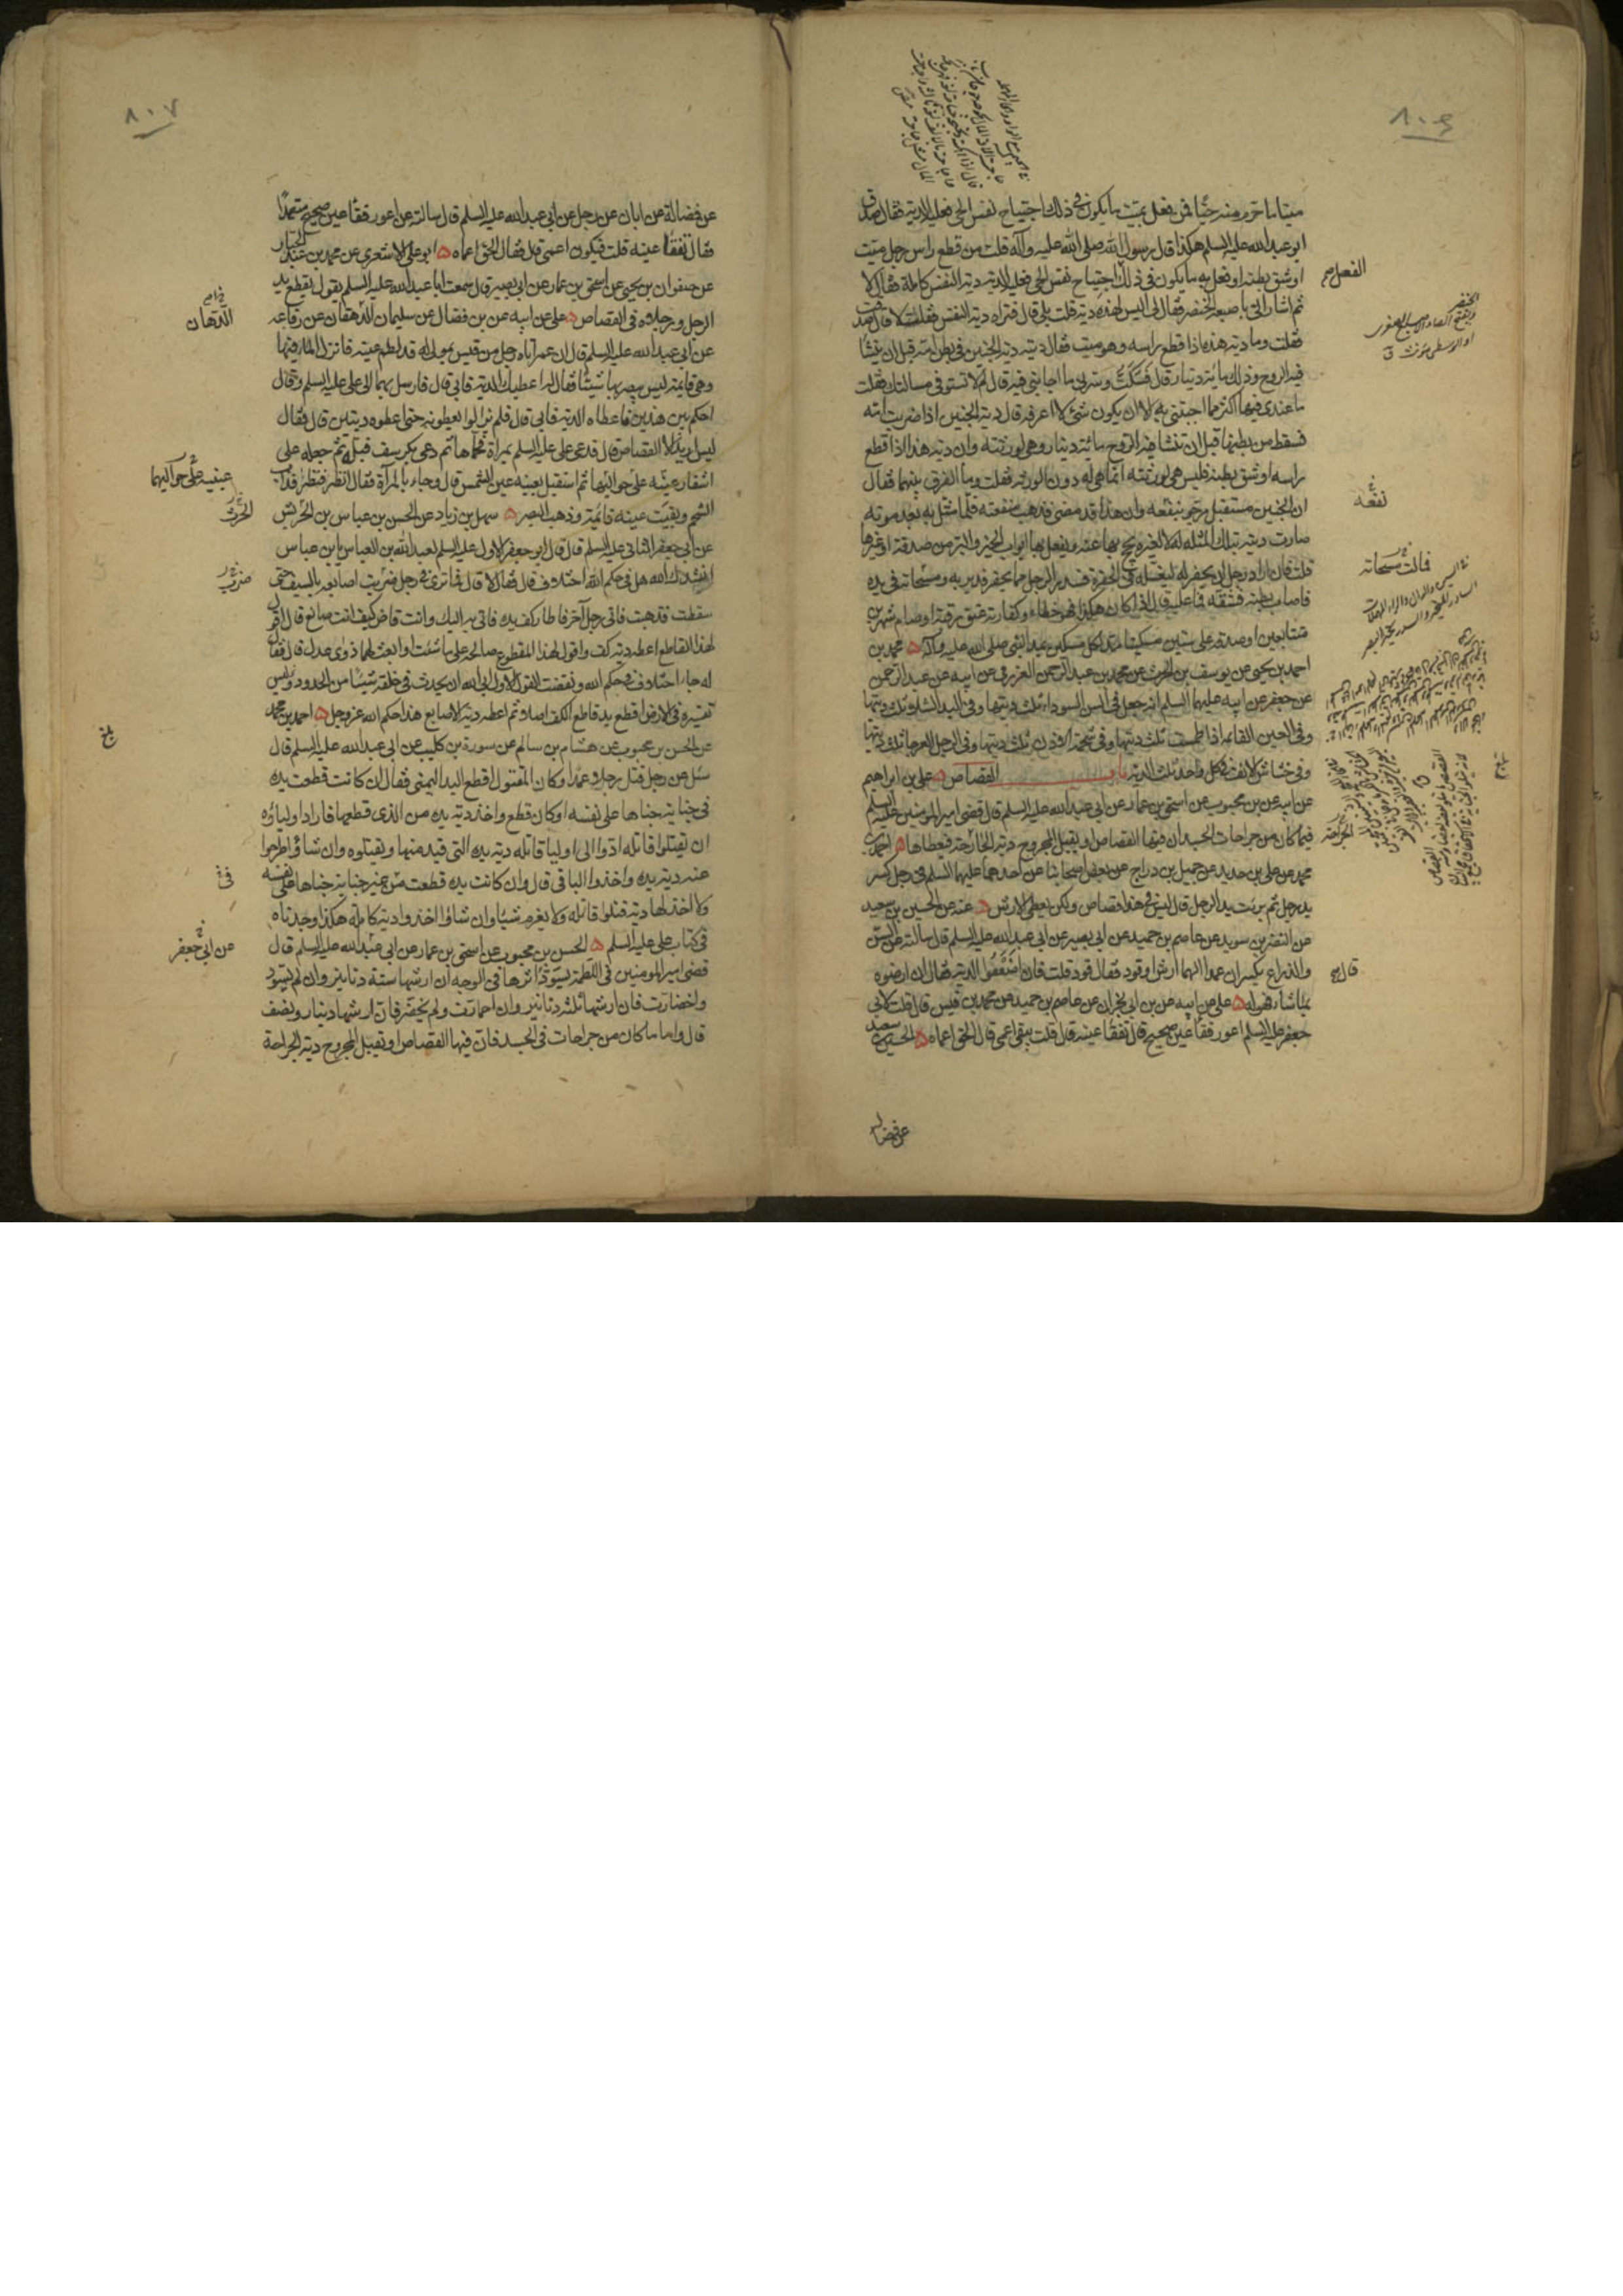 ٨٠٦
ميتا ما حرم منه حيا فمن فعل بميت ما يكون في ذلك اجتياح نفس الحي فعليه الدية فقال صدق
ابو عبد الله عليه السلم هكذا قال رسول الله صلى الله عليه وآله قلت من قطع راس رجل ميت
او شق بطنه او فعل به ما يكون في ذلك اجتياح نفس الحي فعليه الدية دية النفس كاملة فقال لا
ثم اشار الى باصبعه الخنصر فقال لى اليس لهذه دية قلت بلى قال فتراه دية النفس فقلت لا قال صدقت
فقلت وما دية هذه اذا قطع راسه وهو ميت فقال ديته دية الجنين في بطن امه قبل ان ينشا
فيه الروح وذلك مائة دينار قال فسكت وسرني ما اجابني فيه قال لم لا تستوفي مسالتك فقلت
ما عندى فيها اكثر مما اجبتني به الا ان يكون شئ لا اعرفه قال دية الجنين اذا ضربت امه
فسقط من بطنها قبل ان تنشا فيه الروح مائة دينار وهي لورثته وان دية هذا اذا قطع
راسه او شق بطنه فليس هي لورثته انما هي له دون الورثة فقلت وما الفرق بينهما فقال
ان الجنين مستقبل مرجو نفعه وان هذا قد مضى فذهبت منفعته فلما مثل به بعد موته
صارت ديته بتلك المثلة له لا لغيره يحج بها عنه ويفعل بها ابواب الخير والبر من صدقة او غيرها
قلت فان اراد رجل ان يحفر له ليغسله في الحفرة فسدر الرجل مما يحفر فدير به ومسحاته في يده
فاصاب بطنه فشقه فما عليه قال اذا كان هكذا فهو خطاء وكفارته عتق رقبة او صيام شهرين
متتابعين او صدقة على ستين مسكينا مد لكل مسكين بمد النبي صلى الله عليه وآله محمد بن
احمد بن يحيى عن يوسف بن الحرث عن محمد بن عبد الرحمن العزرمي عن ابيه عن عبد الرحمن
عن جعفر عن ابيه عليهما السلم انه جعل في السن السوداء ثلث ديتها وفي اليد الشلاء ثلث ديتها
وفي العين القائمة اذا طمست ثلث ديتها وفي شحمة الاذن ثلث ديتها وفي الرجل العرجا ثلث ديتها
وفي خشاش الانف في كل واحد ثلث الدية باب القصاص على بن ابراهيم
عن ابيه عن بن محبوب عن اسحق بن عمار عن ابي عبد الله عليه السلم قال قضى امير المومنين عليه السلم
فيما كان من جراحات الجسد ان فيها القصاص او يقبل المجروح دية الجراحة فيعطاها احمد بن
محمد عن على بن حديد عن جميل بن دراج عن بعض اصحابنا عن احدهما عليهما السلم في رجل كسر
يد رجل ثم برئت يد الرجل قال ليس في هذا قصاص ولكن يعطى الارش عنه عن الحسين بن سعيد
عن النضر بن سويد عن عاصم بن حميد عن ابي بصير عن ابي عبد الله عليه السلم قال سالته عن السن
والذراع يكسران عمدا الهما ارش او قود فقال قود قلت فان اضعفوا الدية فقال ان ارضوه
بما شاء فهو له على عن ابيه عن بن ابي نجران عن عاصم بن حميد عن محمد بن قيس قال قلت لابي
جعفر عليه السلم اعور فقا عين صحيح قال تفقا عينه قال قلت يبقى اعمى قال الحق اعماه الحسين بن سعيد
عن فضالة
نفعه
قال
٨٠٧
عن فضالة عن ابان عن رجل عن ابي عبد الله عليه السلم قال سالته عن اعور فقا عين صحيح متعمدا
فقال تفقا عينه قلت فيكون اعمى قال فقال الحق اعماه ابو على الاشعرى عن محمد بن عبد الجبار
عن صفوان بن يحيى عن اسحق بن عمار عن ابي بصير قال سمعت ابا عبد الله عليه السلم يقول يقطع يد
الرجل ورجلاه في القصاص على عن ابيه عن بن فضال عن سليمان الدهقان عن رفاعه
عن ابي عبد الله عليه السلم قال ان عمر اتاه رجل من قيس بمولى له قد لطم عينه فانزل الماء فيها
وهي قائمة ليس يبصر بها شيئا فقال له اعطيك الدية فابي قال فارسل بهما الى على عليه السلم وقال
احكم بين هذين فاعطاه الدية فابي قال فلم يزالوا يعطونه حتى اعطوه ديتين قال فقال
ليس اريد الا القصاص قال فدعى على عليه السلم بمراة فحماها ثم دعى بكرسف فبله ثم جعله على
اشفار عينيه على حواليها ثم استقبل بعينه عين الشمس قال وجاء بالمرآة فقال انظر فنظر فذاب
الشحم وبقيت عينه قائمة وذهب البصر سهل بن زياد عن الحسن بن عباس بن الحريش
عن ابي جعفر الثاني عليه السلم قال قال ابو جعفر الاول عليه السلم لعبد الله بن العباس يابن عباس
انشدك الله هل في حكم الله اختلاف قال فقال لا قال فما ترى في رجل ضربت اصابعه بالسيف حتى
سقطت فذهبت فاتى رجل آخر فاطار كف يده فاتي به اليك وانت قاض كيف انت صانع قال اقول
لهذا القاطع اعطه دية كف واقول لهذا المقطوع صالحه على ما شئت او ابعث لهما ذوى عدل قال فقال
له جاء اختلاف في حكم الله ونقضت القول الاول ابى الله ان يحدث في خلقه شيئا من الحدود وليس
تفسيره في الارض اقطع يد قاطع الكف اصلا ثم اعطه دية الاصابع هذا حكم الله عز وجل احمد بن محمد
عن الحسن بن محبوب عن هشام بن سالم عن سورة بن كليب عن ابي عبد الله عليه السلم قال
سئل عن رجل قتل رجلا عمدا وكان المقتول اقطع اليد اليمنى فقال ان كانت قطعت يده
في جناية جناها على نفسه او كان قطع واخذ دية يده من الذى قطعها فاراد اولياؤه
ان يقتلوا قاتله ادوا الى اوليا قاتله دية يده التي قيد منها ويقتلوه وان شاؤا طرحوا
عنه دية يده واخذوا الباقي قال وان كانت يده قطعت من غير جناية جناها على نفسه
ولا اخذ لها دية قتلوا قاتله ولا يغرم شيئا وان شاؤا اخذوا دية كاملة هكذا وجدناه
في كتاب على عليه السلم الحسن بن محبوب عن اسحق بن عمار عن ابي عبد الله عليه السلم قال
قضى امير المومنين في اللطمة يسود اثرها في الوجه ان ارشها ستة دنانير وان لم يسود
واخضارت فان ارشها ثلثة دنانير وان احمارت ولم يخضر فان ارشها دينار ونصف
قال واما ما كان من جراحات في الجسد فان فيها القصاص او يقبل المجروح دية الجراحة
الدهان
عينيه على حواليهما
عن ابي جعفر